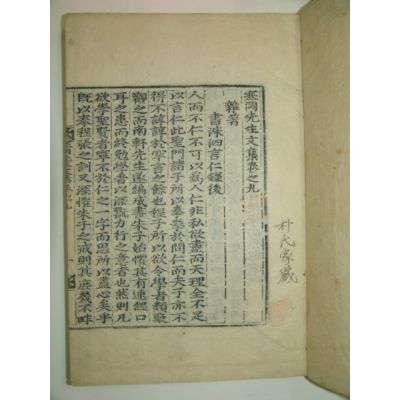 寒岡先生文集卷之九
雜著
書洙泗言仁錄後
人而不仁不可以為人非私欲盡而天理全不足
以言仁此聖門諸子所以拳拳於問仁而夫子亦不
得不諄諄於罕言之餘也程子所以欲令學者類聚
觀之而南軒先生遂編成書朱子始懼其有速徑口
耳之患而終勉學者以深翫力行之意者也然則凡
欲學聖賢者寧不於仁之一字而思所以盡心矣乎
既以奉程張之訓又深懼朱子之戒則其庶幾不畔
朴氏家藏